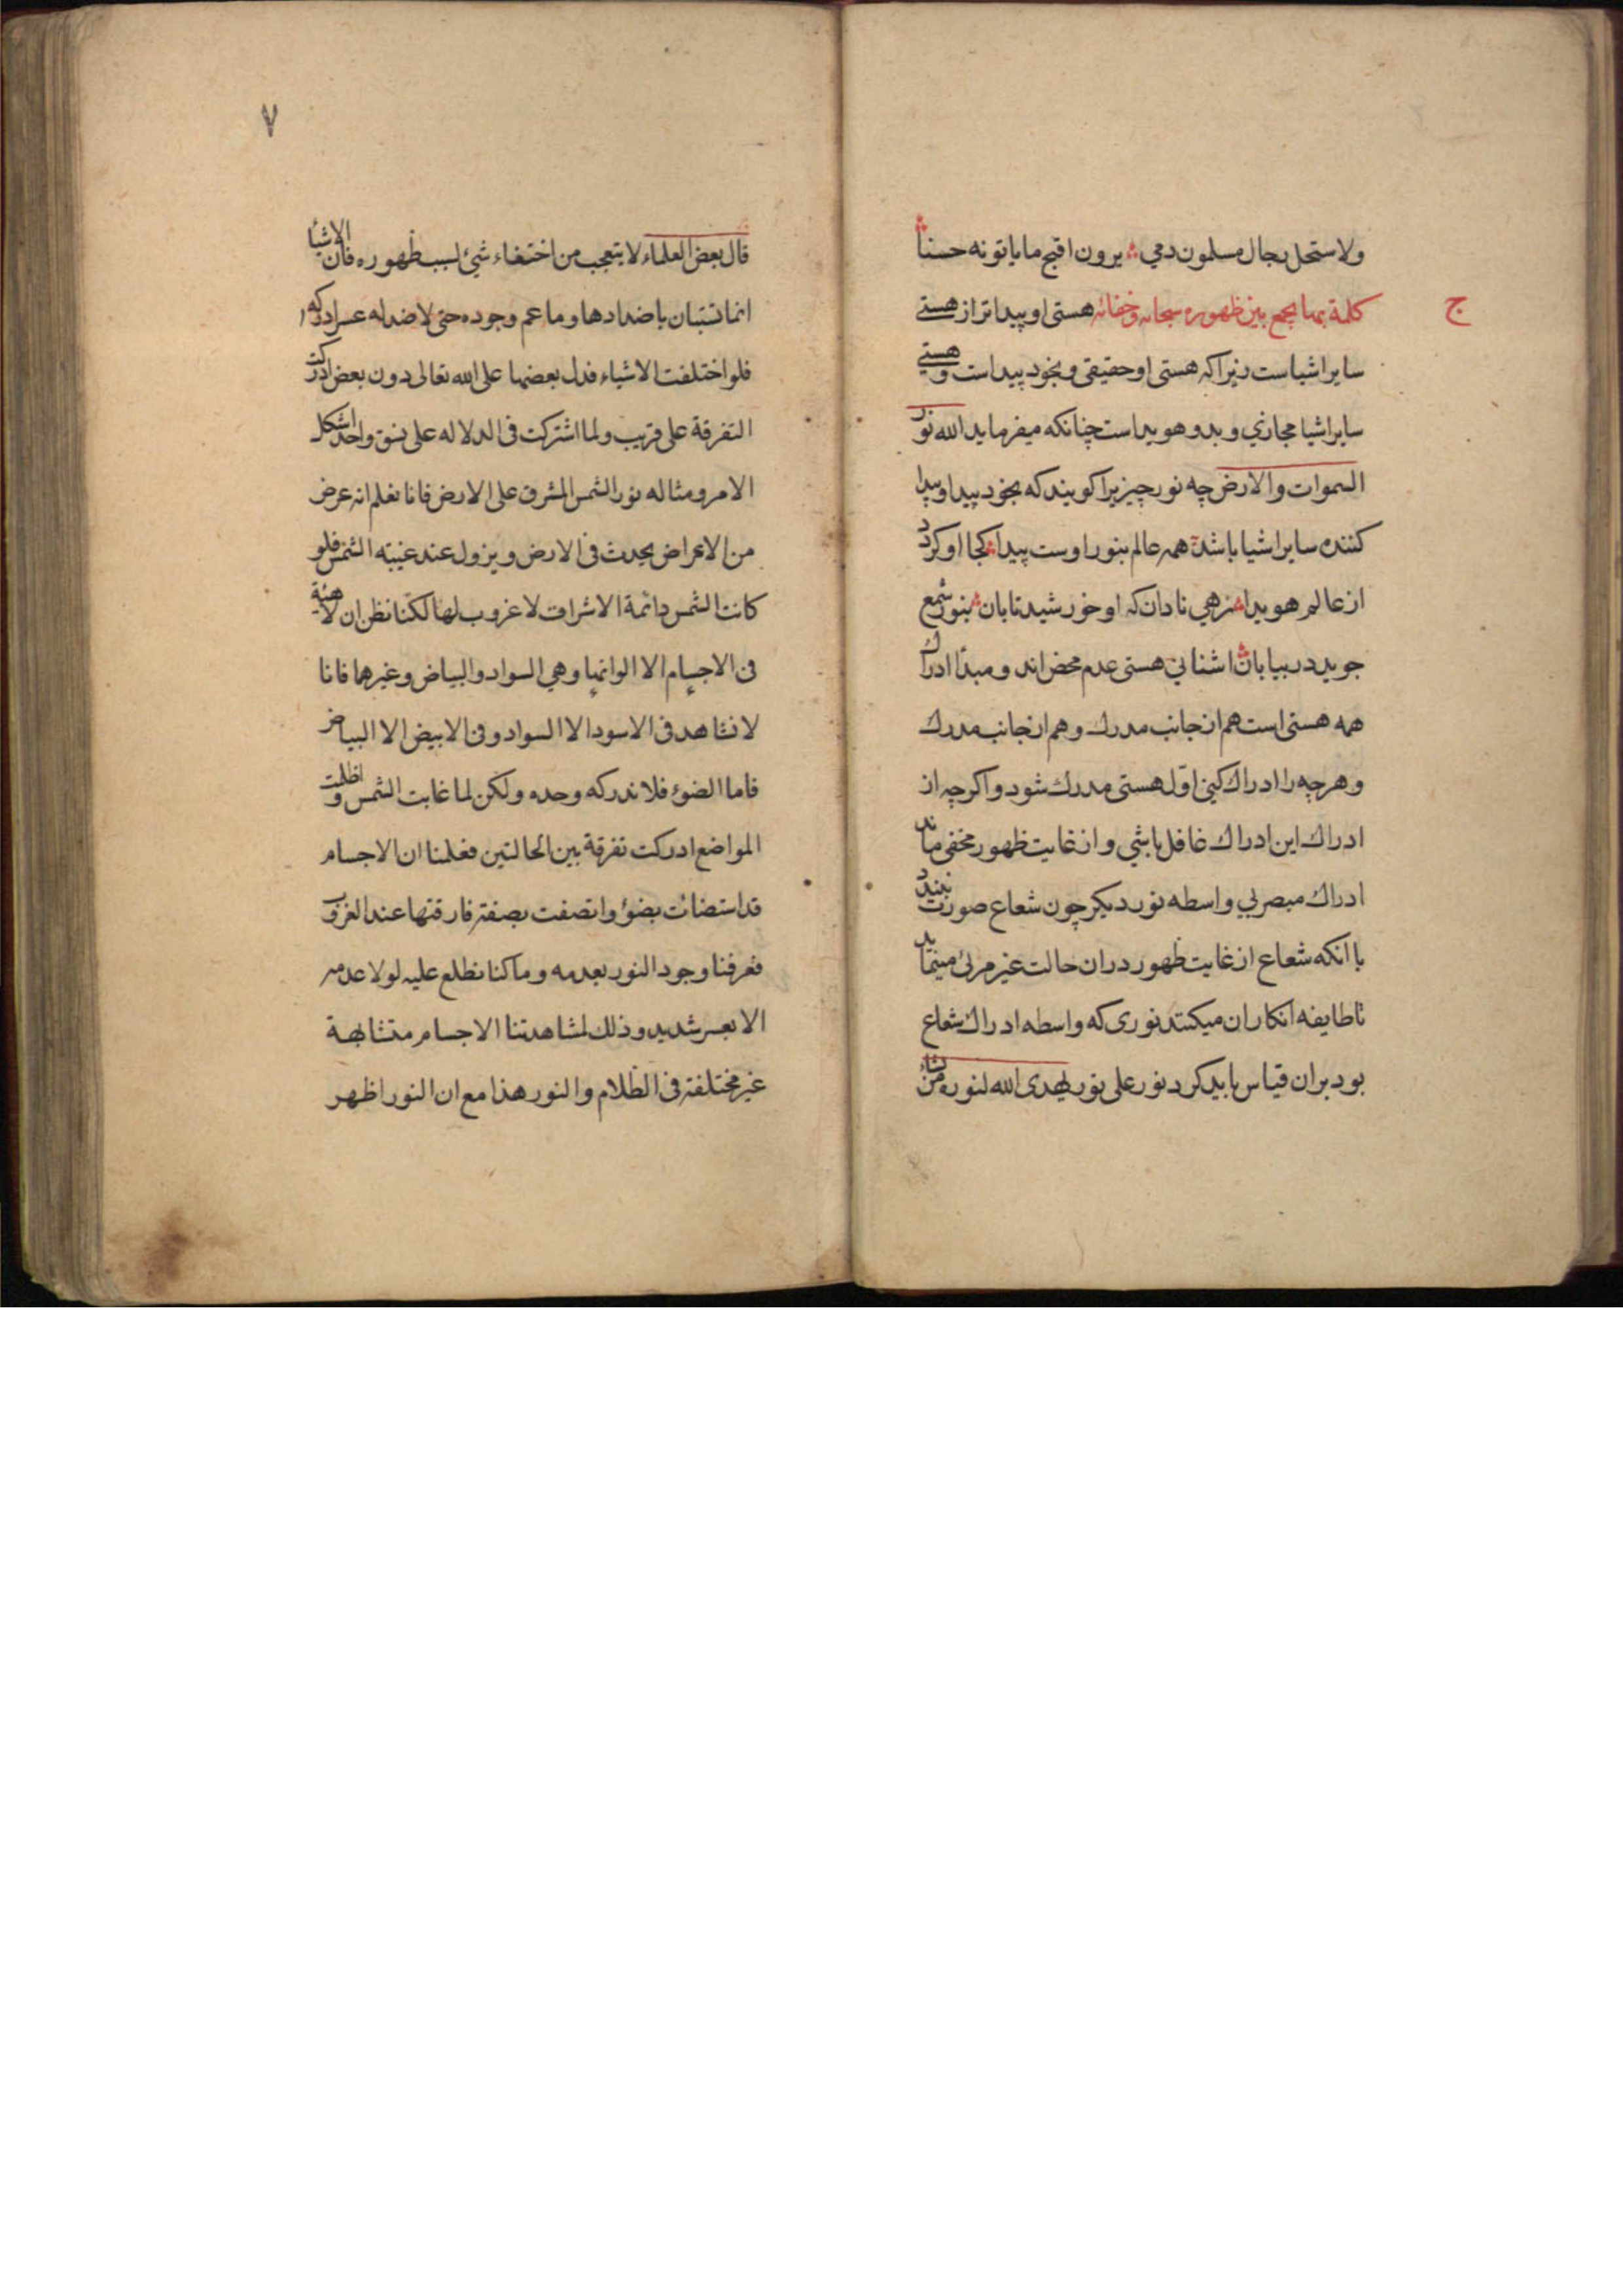 ولاستحل رجال مسلمون دمي يرون اقبح ما ياتونه حسنا
ج
كلمة بها يجمع بين ظهوره سبحانه وخفائه هستی او پیدا تر از هستی
سایر اشیاست زیرا که هستی او حقیقی و بخود پیداست و هستی
سایر اشیا مجازي و بدو هویداست چنانکه میفرماید الله نور
السموات والارض چه نور چیزیرا کویند که بخود پیدا و پیدا
کننده سایر اشیا باشد همه عالم بنور اوست پیدا کجا او کردد
از عالم هویدا زهي نادان که او خورشید تابان بنور شمع
جوید در بیابان اشیا بی هستی عدم محض اند و مبدأ ادراك
همه هستی است هم از جانب مدرك و هم از جانب مدرك
و هر چه را ادراك کنی اول هستی مدرك شود و اکر چه از
ادراك این ادراك غافل باشي و از غایت ظهور مخفی ماند
ادراك مبصر بي واسطه نور دیکر چون شعاع صورت نبندد
با انکه شعاع از غایت ظهور در ان حالت غیر مرئی مینماید
تا طایفه انکار ان میکنند نوری که واسطه ادراك شعاع
بود بران قیاس باید کرد نور علی نور یهدی الله لنوره من یشاء
٧
قال بعض العلماء لا يتعجب من اختفاء شئ لسبب ظهوره فان الاشيا
انما تستبان باضدادها وما عم وجوده حتى لا ضد له عسر ادراكه
فلو اختلفت الاشياء فدل بعضها على الله تعالى دون بعض ادركت
التفرقة على قريب ولما اشتركت فى الدلاله على نسق واحد اشكل
الامر ومثاله نور الشمس المشرق على الارض فانا نعلم انه عرض
من الاعراض يحدث فى الارض ويزول عند غيبته الشمس فلو
كانت الشمس دائمة الاشراق لا غروب لها لكنا نظن ان لا هيئة
فى الاجسام الا الوانها وهي السواد والبياض وغيرها فانا
لا نشاهد فى الاسود الا السواد وفى الابيض الا البياض
فاما الضوء فلا ندركه وحده ولكن لما غابت الشمس و اظلمت
المواضع ادركت تفرقة بين الحالتين فعلمنا ان الاجسام
قد استضائت بضوء واتصفت بصفة فارقتها عند الغروب
فعرفنا وجود النور بعدمه وما كنا نطلع عليه لولا عدمه
الا بعسر شديد وذلك لمشاهدتنا الاجسام متشابهة
غير مختلفة فى الظلام والنور هذا مع ان النور اظهر